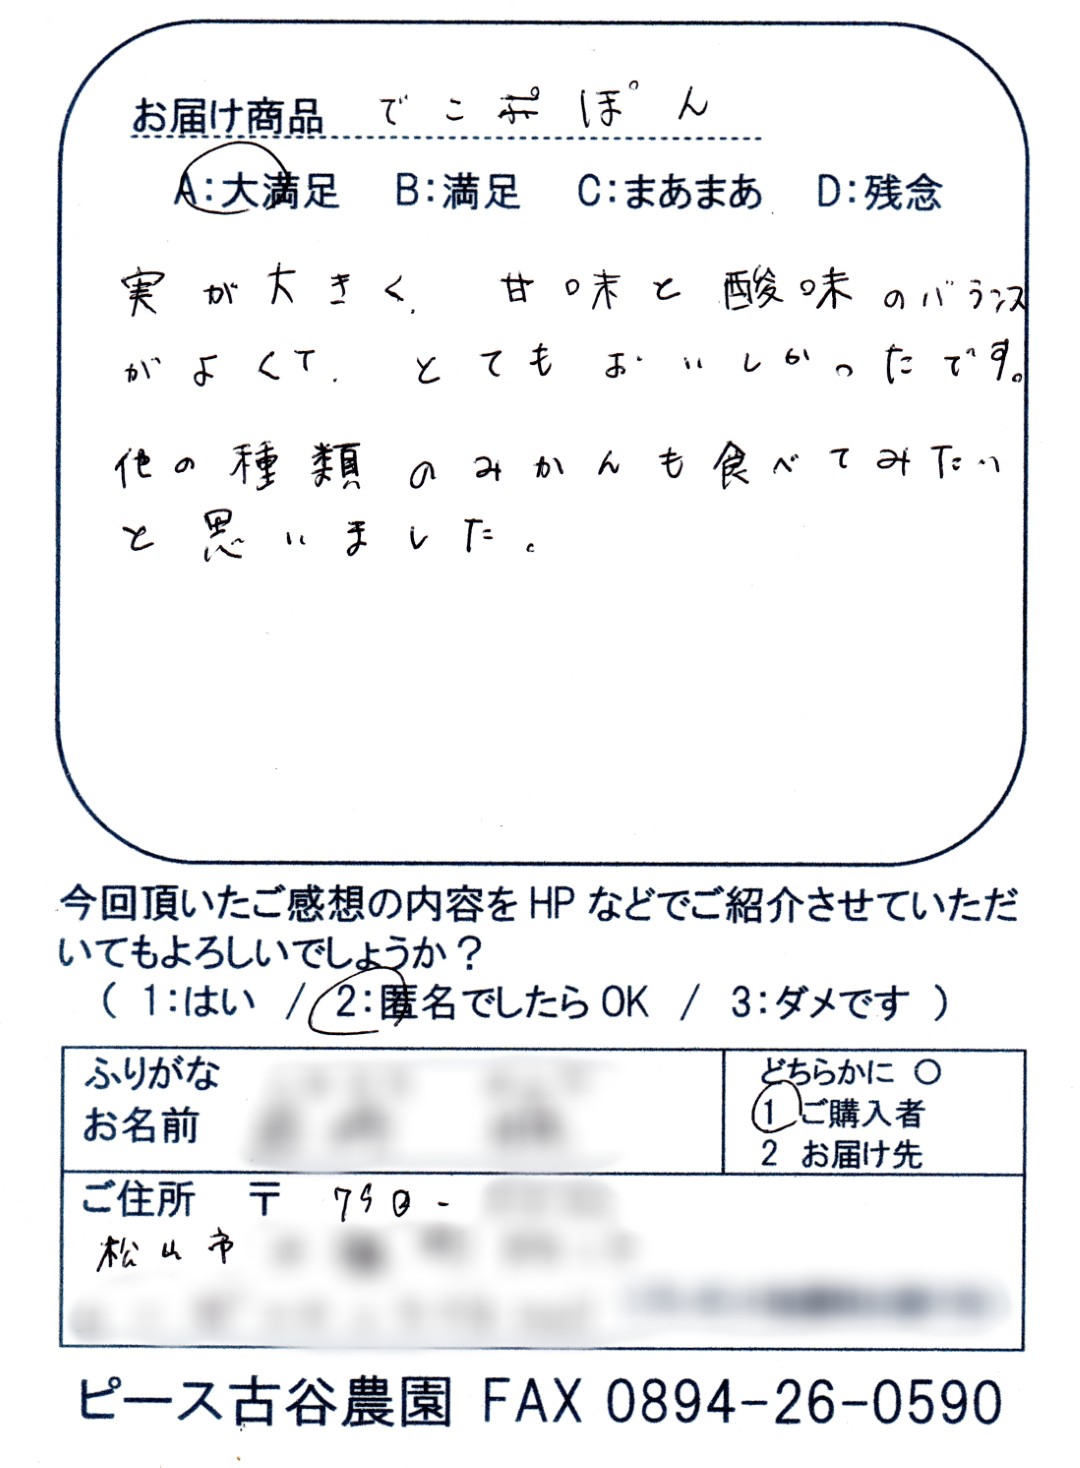 お届け商品 でこぽぽん
A:大満足 B:満足 C:まあまあ D:残念
実が大きく、甘味と酸味のバランス
がよくて、とてもおいしかったです。
他の種類のみかんも食べてみたい
と思いました。
今回頂いたご感想の内容をHPなどでご紹介させていただ
いてもよろしいでしょうか?
( 1:はい / 2:匿名でしたらOK / 3:ダメです )
ふりがな
お名前
どちらかに ○
1 ご購入者
2 お届け先
ご住所 〒 790-
松山市
ピース古谷農園 FAX 0894-26-0590